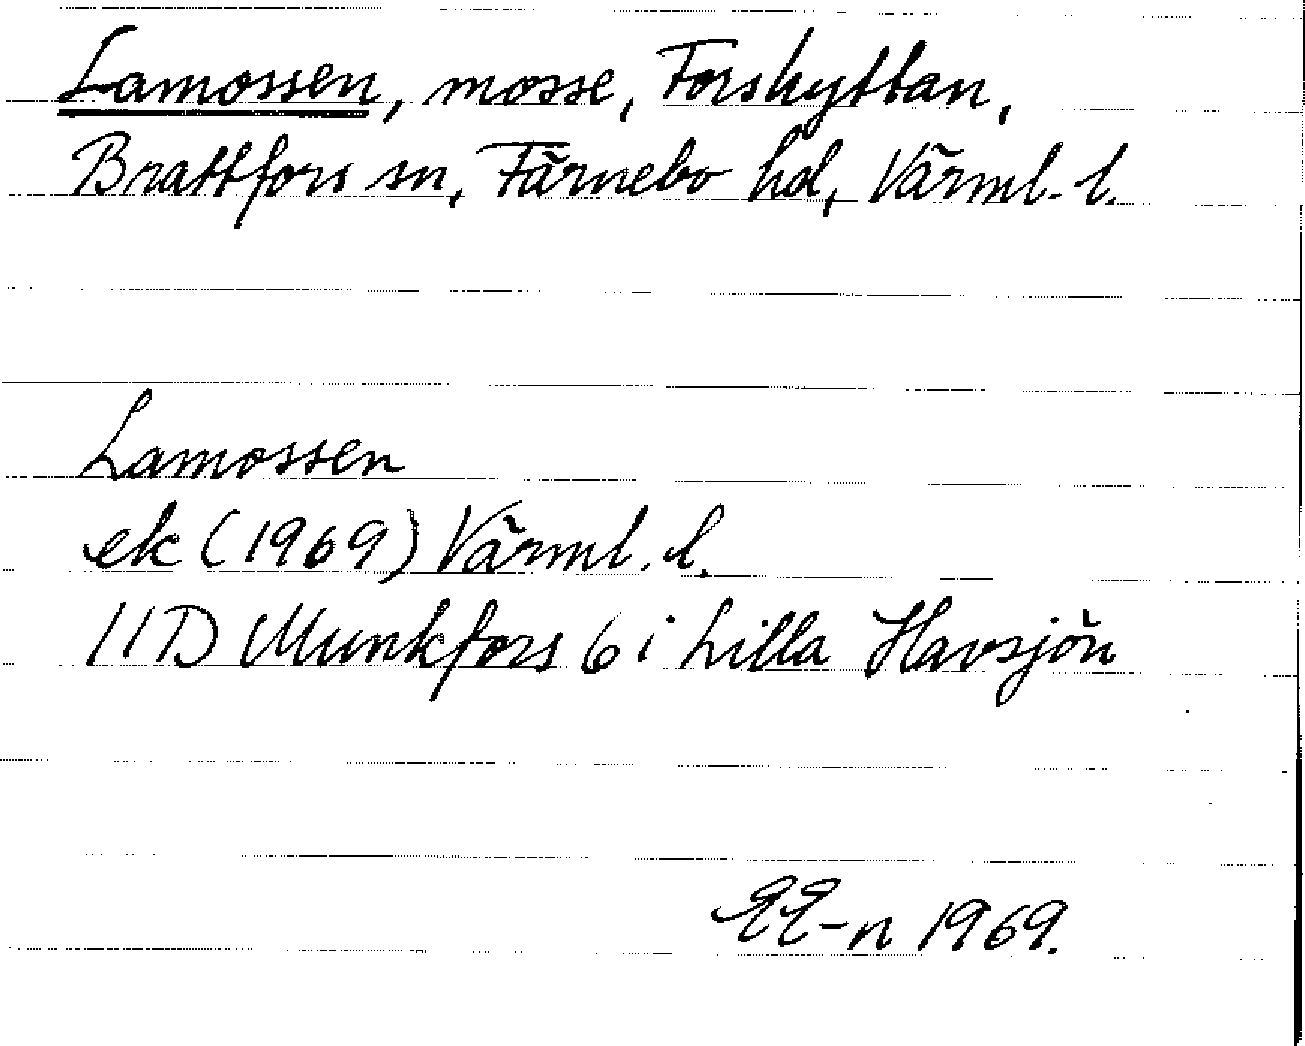 Lamossen, mosse, Forshyttan,
Brattfors sn, Färnebo hd, Värml. l.
Lamossen
ek (1969) Värml. l.
11D Munkfors 6 i Lilla Havsjön
-n 1969.